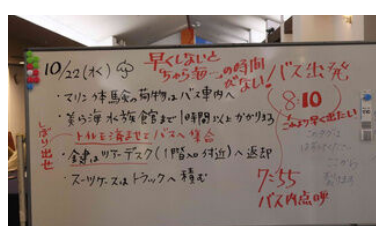 10/22(水)
早くしないと
ちゅら海への時間
がない!
バス出発
8:10
これより早く出たい
・マリン体験の荷物はバス車内へ
・美ら海水族館まで1時間以上かかります
トイレを済ませてバスへ集合
・鍵はツアーデスク(1階入口付近)へ返却
・スーツケースはトラックへ積む
7:55
バス内点呼